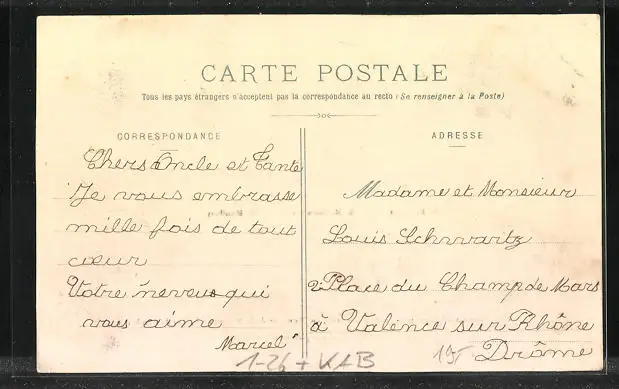 CARTE POSTALE
Tous les pays étrangers n'acceptent pas la correspondance au recto (Se renseigner à la Poste)
CORRESPONDANCE
Chers Oncle et Tante
Je vous embrasse
mille fois de tout
cœur
Votre neveu qui
vous aime
Marcel
ADRESSE
Madame et Monsieur
Louis Schwaritz
2 Place du Champ de Mars
à Valence sur Rhône
Drôme
1-26 + KAB
195